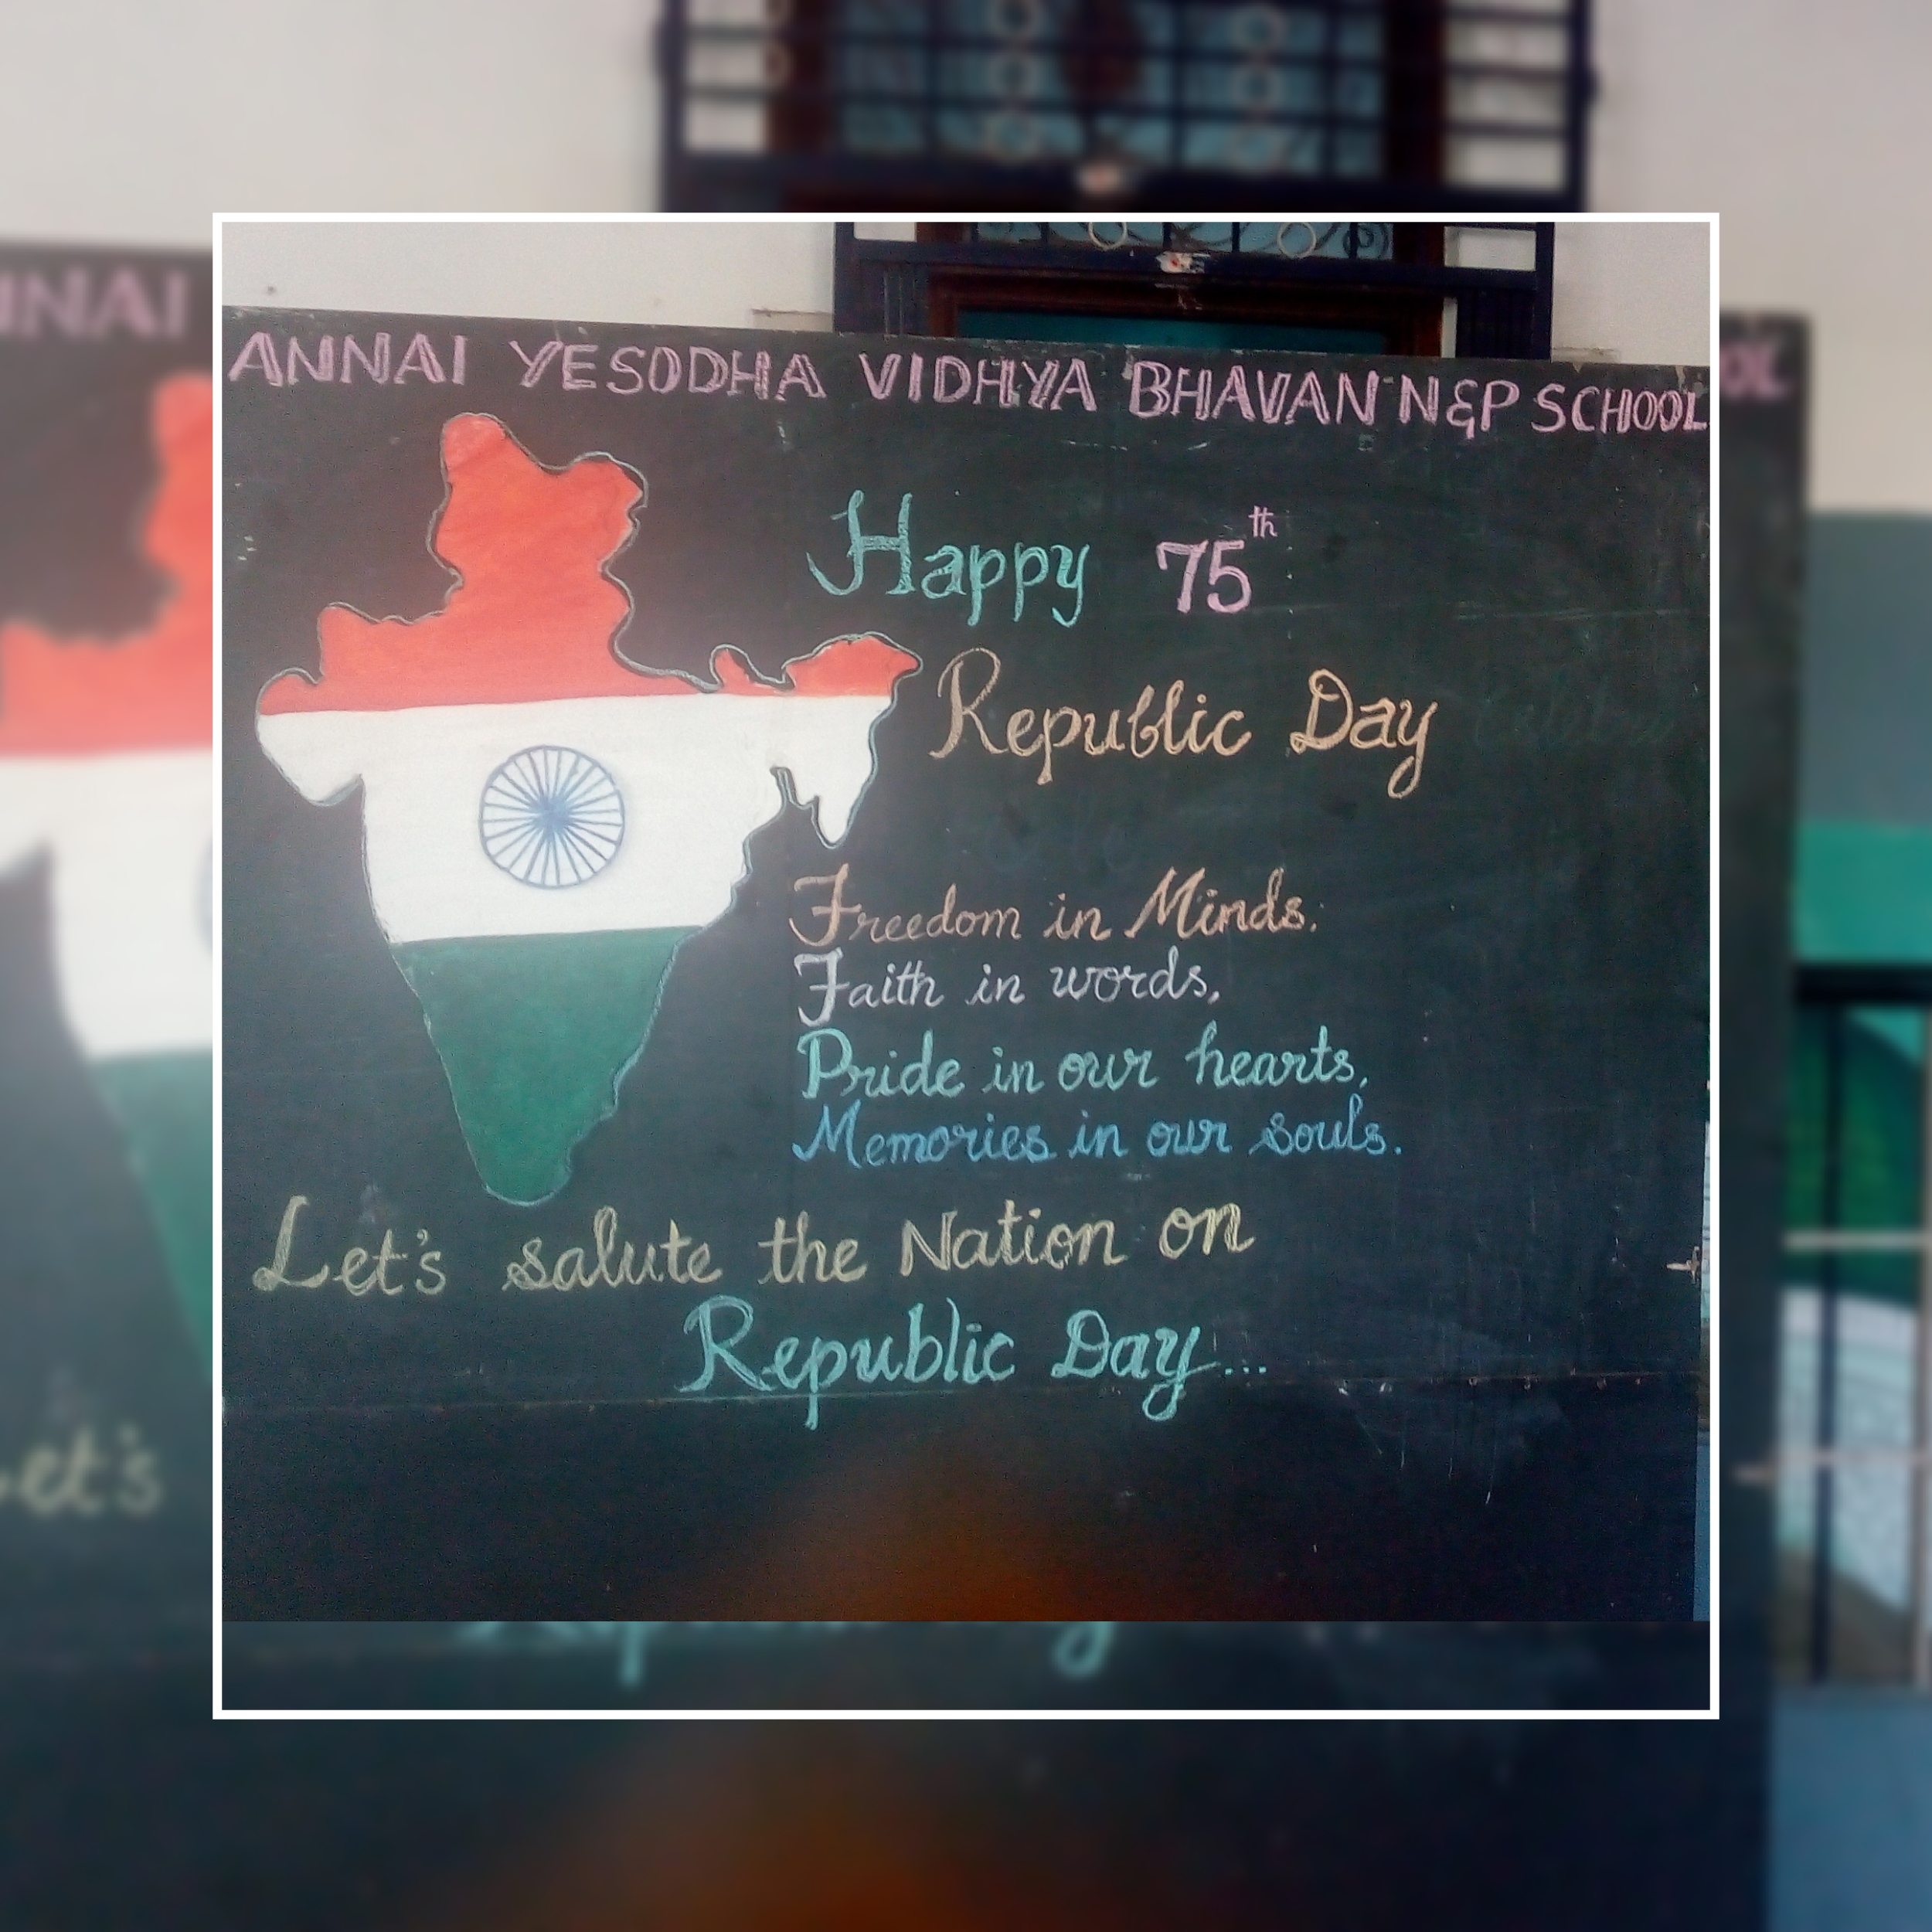 ANNAI YESODHA VIDHYA BHAVAN N&P SCHOOL
Happy 75th
Republic Day
Freedom in Minds.
Faith in words,
Pride in our hearts,
Memories in our souls.
Let's salute the Nation on
Republic Day...